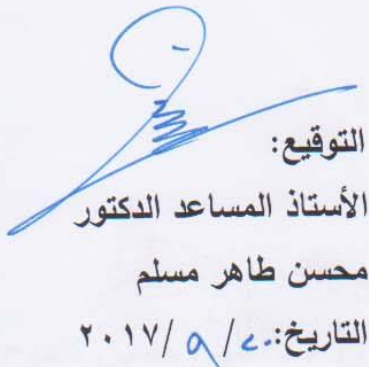 التوقيع:
الأستاذ المساعد الدكتور
محسن طاهر مسلم
التاريخ: ٢٠/٩/٢٠١٧